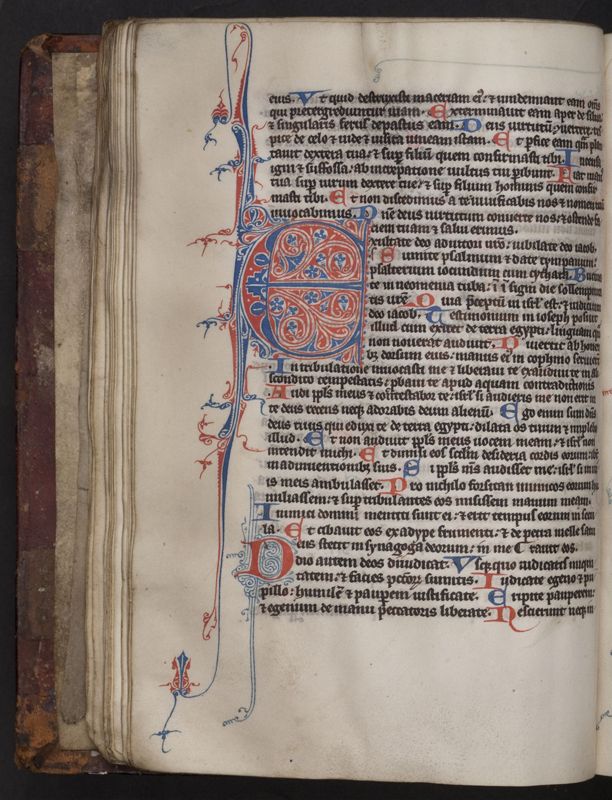 eius. Vt quid destruxisti maceriam ei: & uindemiant eam om̄s
qui pretergrediuntur uiam. Exterminauit eam aper de silua:
& singularis ferus depastus eam. Deus uirtutū
pice de celo & uide & uisita uineam istam. Et ꝑfice eam
tauit dextera tua: & suꝑ filiū quem confirmasti tibi. Incensa
igni & suffossa: ab increpatione uultus tui ꝑibunt. Fiat man
tua suꝑ uirum dextere tue: & suꝑ filium hominis quem confir
masti tibi. Et non discedimus a te uiuificabis nos: & nomen tuū
inuocabimus. Dn̄e deus uirtutum conuerte nos: & ostende fa
ciem tuam & salui erimus.
Exultate deo adiutori nr̄o: iubilate deo iacob.
Sumite psalmum & date tympanum:
psalterium iocundum cum cythara. Buccina
te in neomenia tuba: in signi die sollempni
tatis ur̄e. Quia p̄ceptū in isrl̄ est: & iudicium
deo iacob. Testimonium in ioseph posuit
illud cum exiret de terra egypti: linguam
non nouerat audiuit. Diuertit ab honeri
bꝫ dorsum eius: manus ei in cophino seruierū
In tribulatione inuocasti me & liberaui te exaudiui te in ab
scondito tempestatis: ꝓbaui te apud aquam contradictionis
Audi ppl̄s meus & contestabor te: isrl̄ si audieris me non erit in
te deus recens necꝫ adorabis deum alienū. Ego enim sum dn̄s
deus tuus qui eduxi te de terra egypti: dilata os tuum & implebo
illud. Et non audiuit ppl̄s meus uocem meam: & isrl̄ non
intendit michi. Et dimisi eos scd̄m desideria cordis eorum:
in adinuentionibꝫ suis. Si ppl̄s m̄s audisset me: isrl̄ si in
is meis ambulasset. Pro nichilo forsitan inimicos eorum
humiliassem: & suꝑ tribulantes eos misissem manum meam.
Inimici domini mentiti sunt ei: & erit tempus eorum in secu
la. Et cibauit eos ex adype frumenti: & de petra melle satu
Deus stetit in synagoga deorum: in me rauit eos.
dio autem deos diiudicat. Vscꝫ quo iudicatis iniqui
tatem: & facies pccōꝝ sumitis. Iudicate egeno & pu
pillo: humilē & pauꝑem iustificate. Eripite pauperem:
& egenum de manu peccatoris liberate. Nescierunt necꝫ in